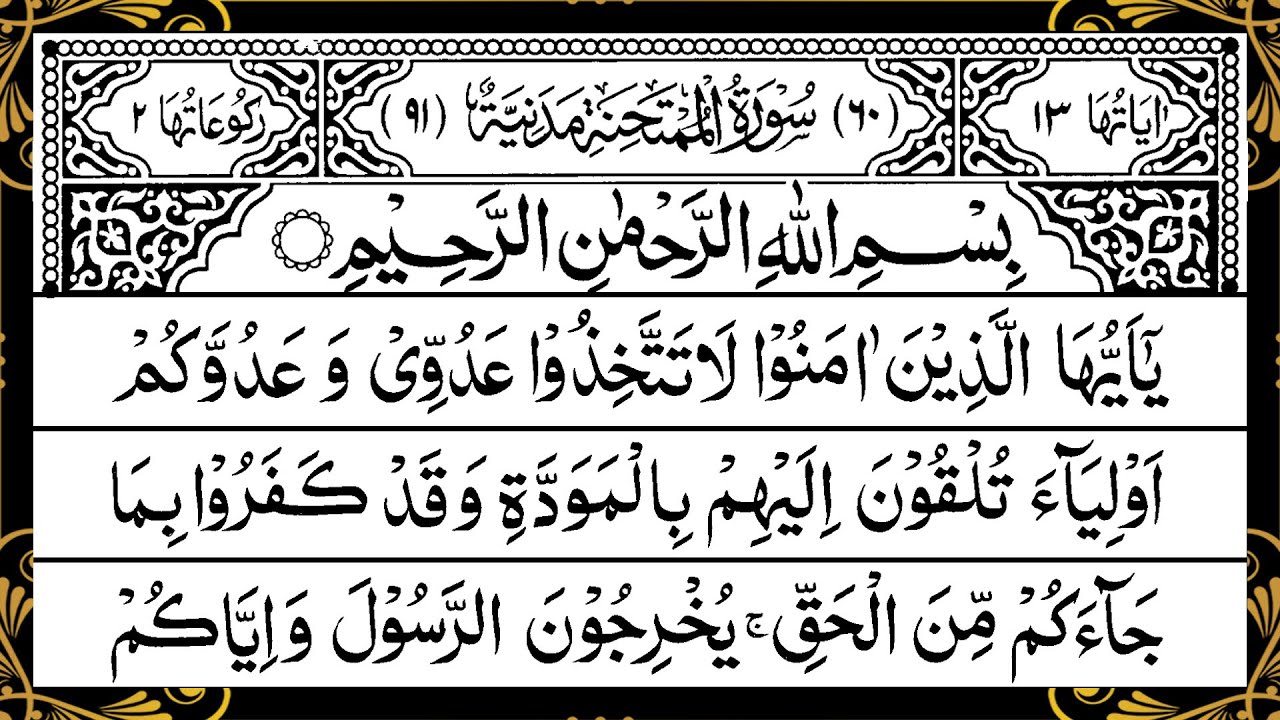 اٰيَاتُهَا ١٣ (٦٠) سُوْرَةُ الْمُمْتَحِنَةِ مَدَنِيَّةٌ (٩١) رُكُوْعَاتُهَا ٢
بِسْمِ اللّٰهِ الرَّحْمٰنِ الرَّحِيْمِ
يٰٓاَيُّهَا الَّذِيْنَ اٰمَنُوْا لَا تَتَّخِذُوْا عَدُوِّيْ وَ عَدُوَّكُمْ
اَوْلِيَآءَ تُلْقُوْنَ اِلَيْهِمْ بِالْمَوَدَّةِ وَ قَدْ كَفَرُوْا بِمَا
جَآءَكُمْ مِّنَ الْحَقِّ ۚ يُخْرِجُوْنَ الرَّسُوْلَ وَ اِيَّاكُمْ